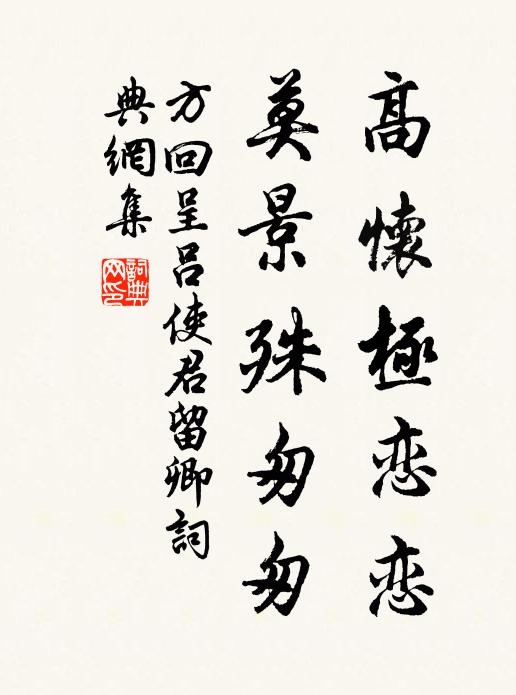 高懷極恋恋
莫景殊匆匆
方回呈吕使君留卿詞
典網集
詞典网印